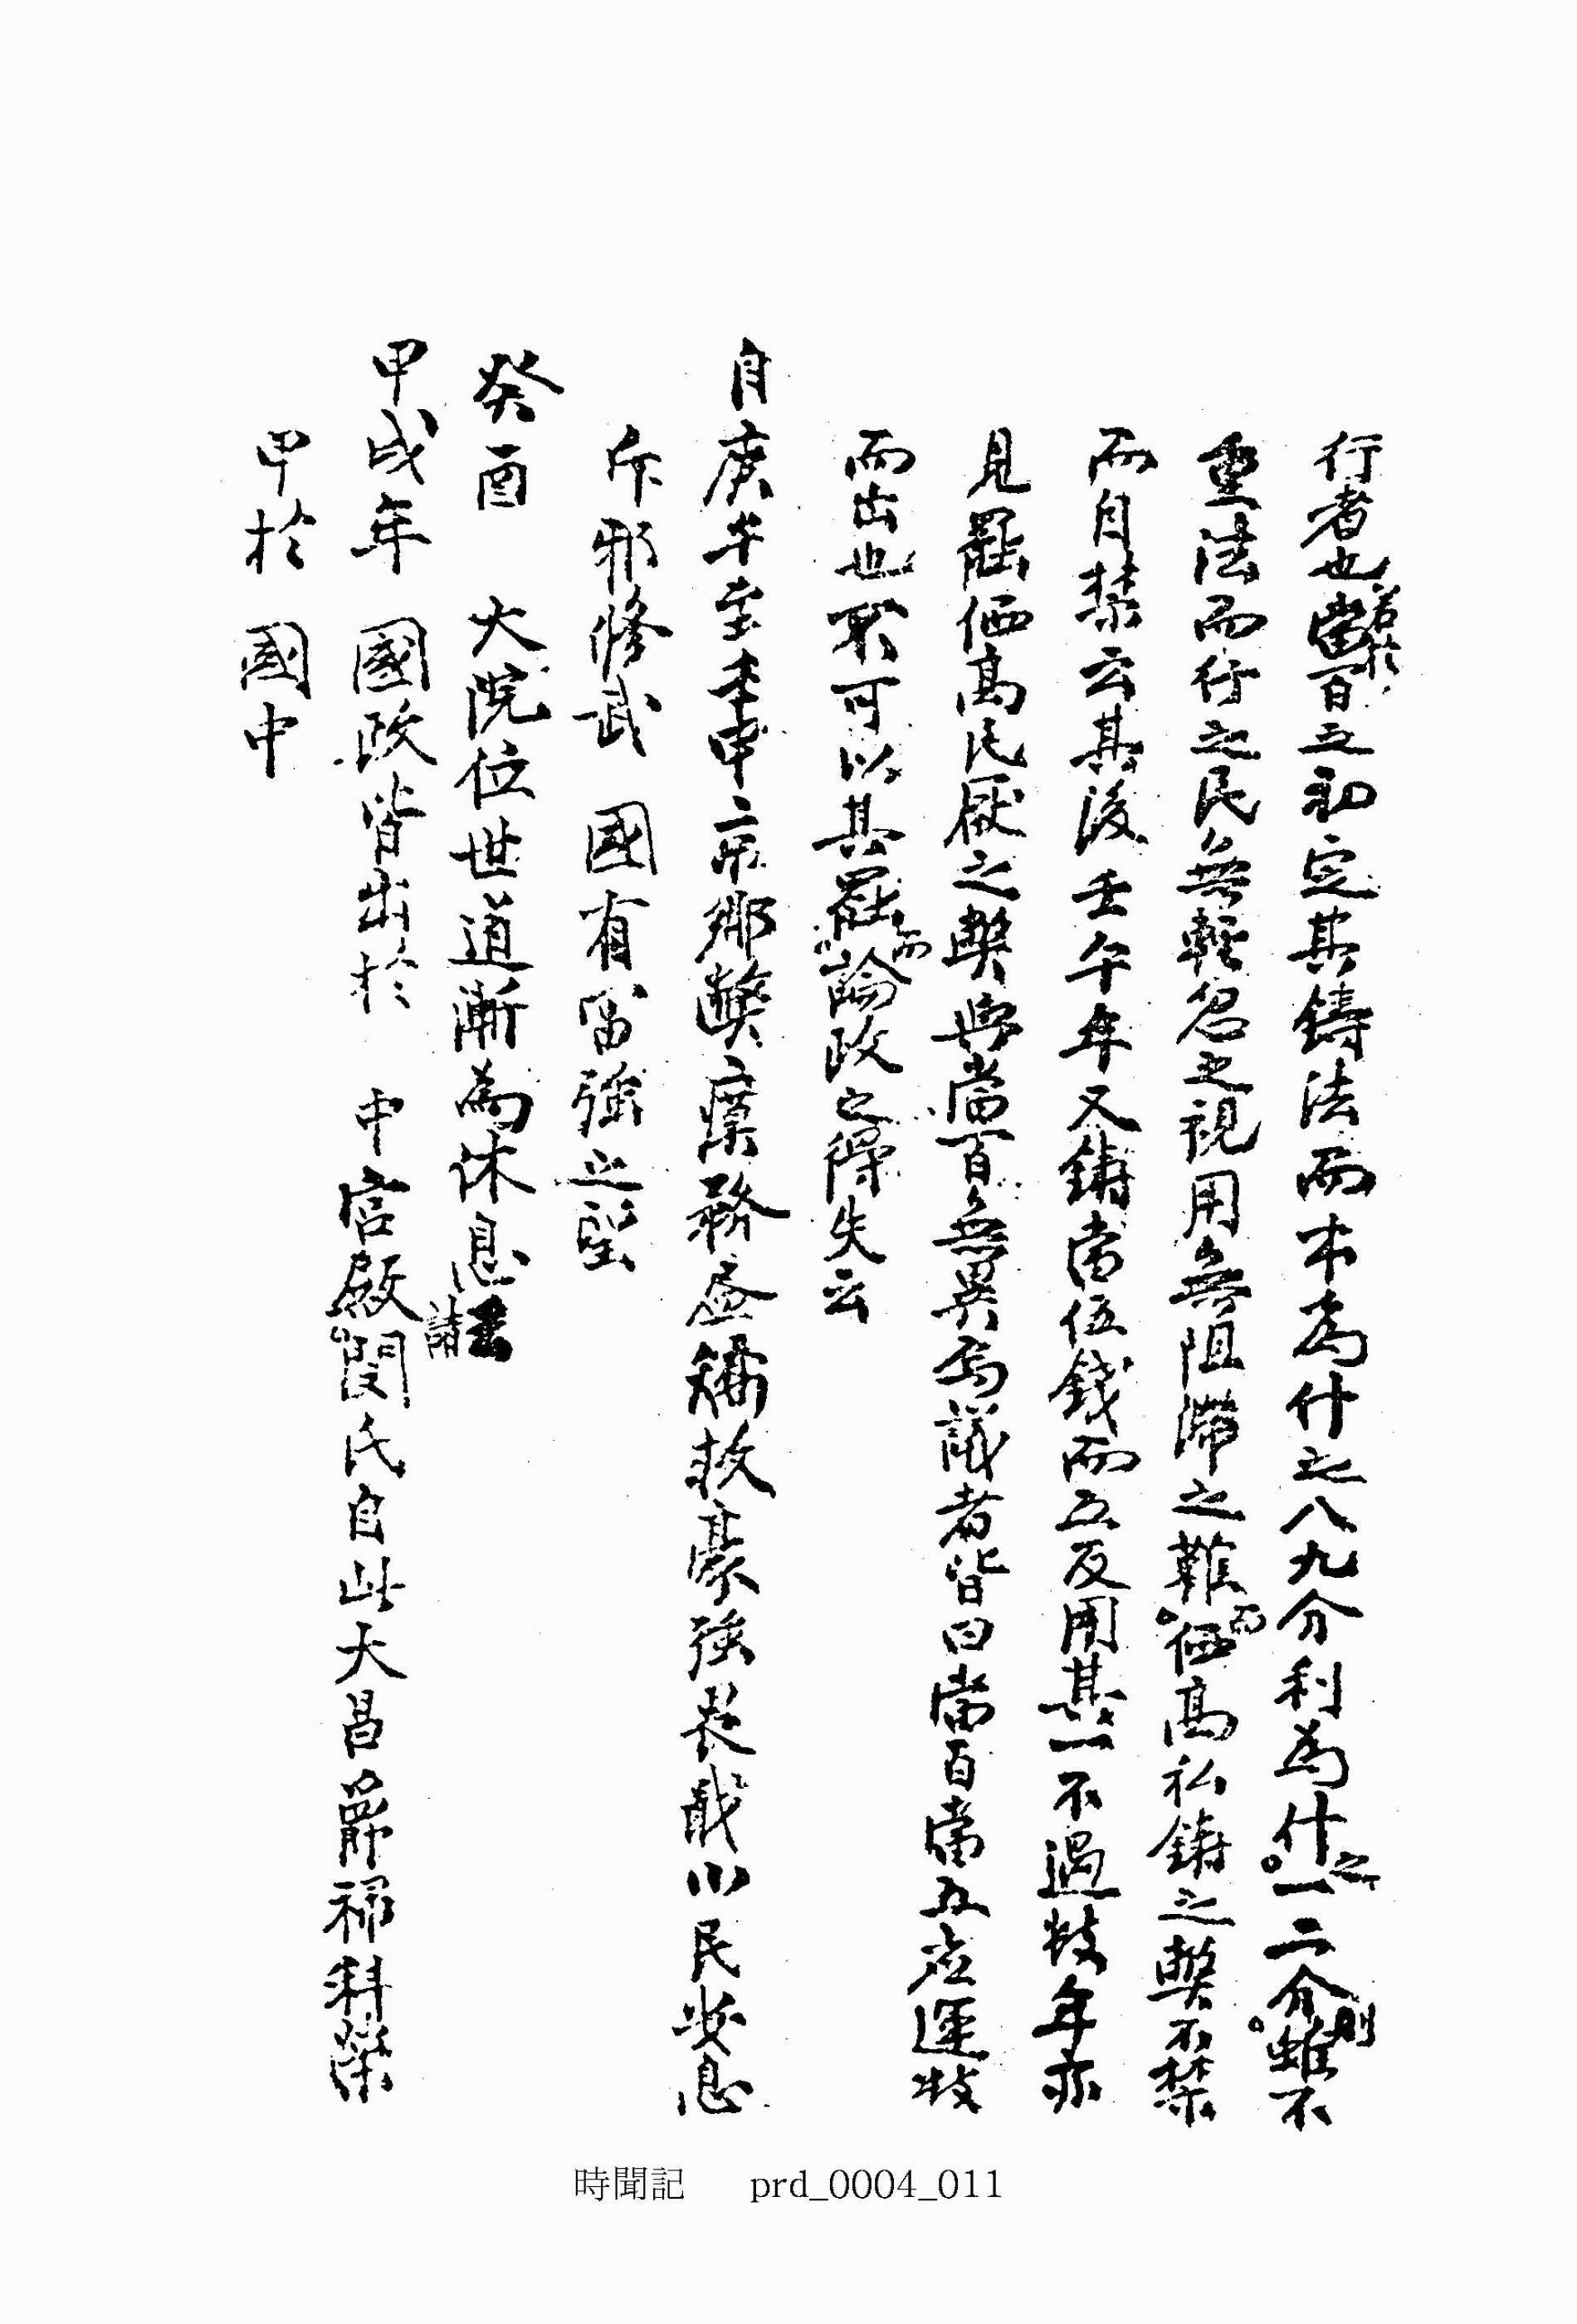 行者也若於當百之初定其鑄法而本為什之八九分利為什之一二分則雖不
重法而行之民無輕忽之視用無阻滯之難而価高私鑄之弊不禁
而自禁云其後壬午年又鑄當伍錢而五反用其一不過數年亦
見罷価高民厭之弊與當百無異焉議者皆曰當百當五應運數
而出也不可以其罷而論政之得失云
自庚午至壬申京鄉弊瘼務盡矯救豪強畏戢小民安息
斥邪修武 國有富強之望
癸酉 大院位世道漸為休息
甲戌年 國政皆出於 中宮殿閔氏自此大昌爵祿科榮
甲於 國中
時聞記 prd_0004_011